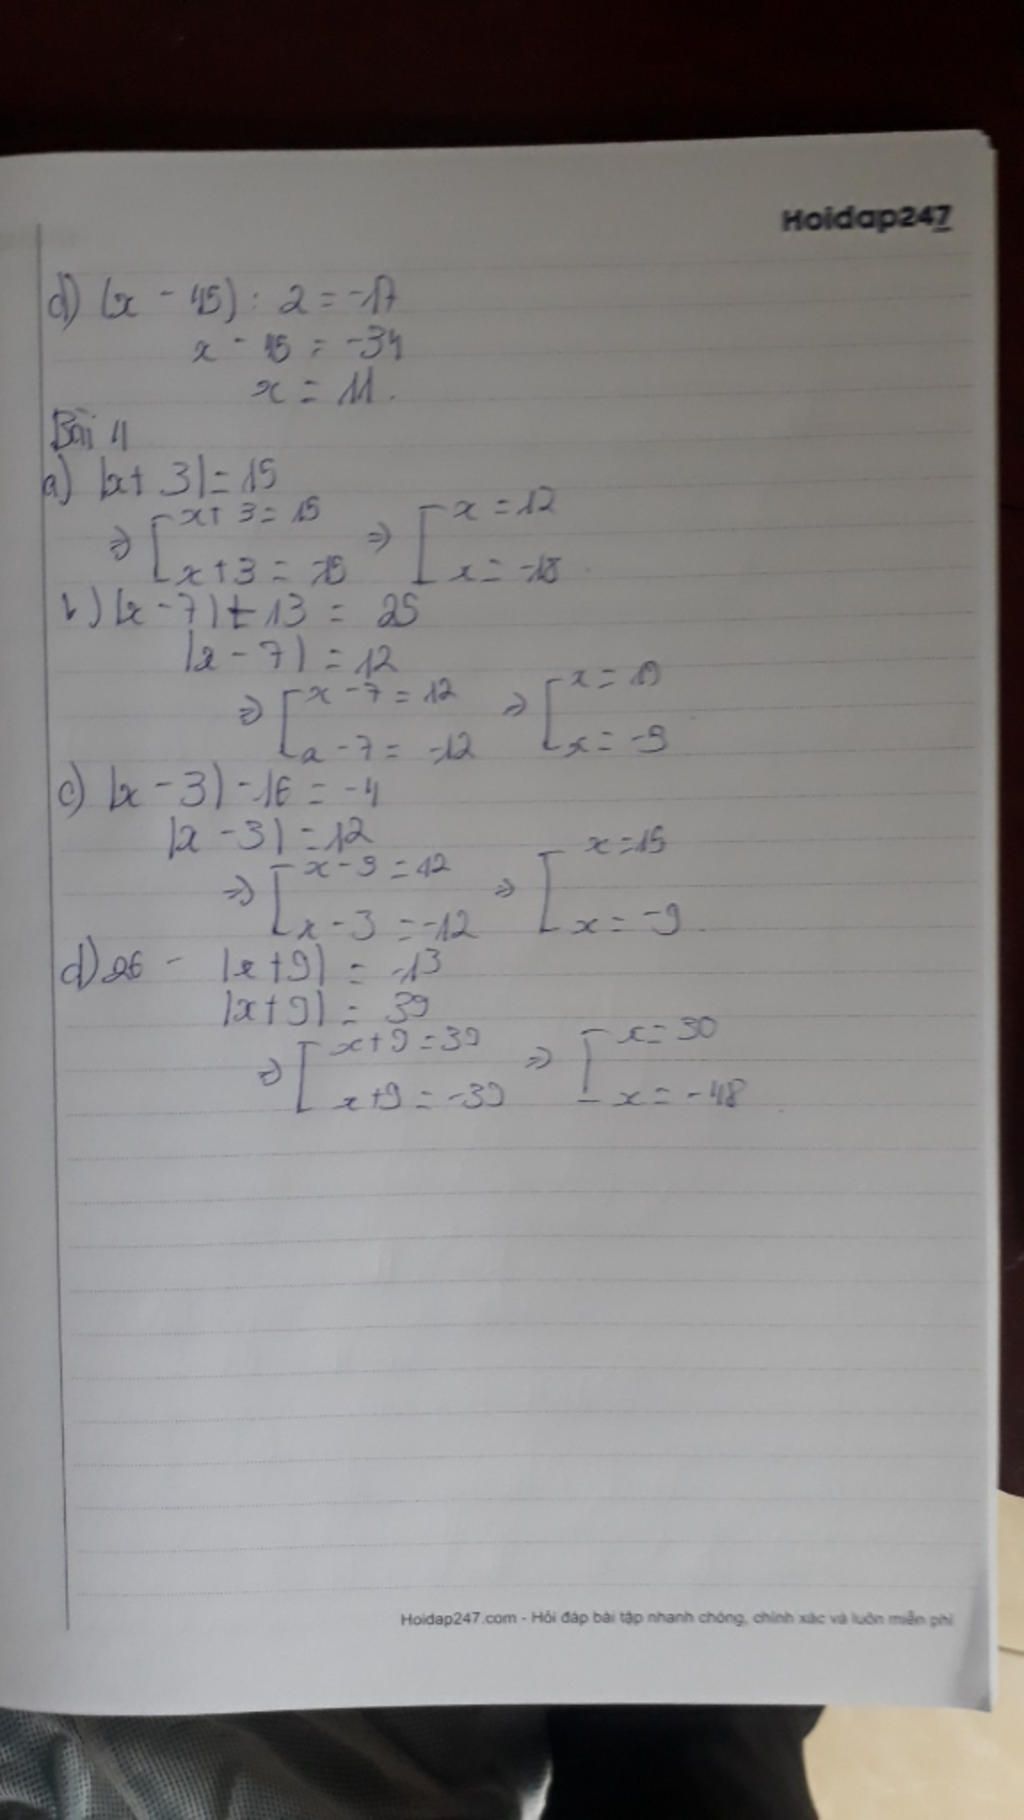 Hoidap247
d) (x - 45) : 2 = -17
x - 45 = -34
x = 11.
Bài 4
a) |x + 3| = 15
⇒ [ x + 3 = 15 ⇒ [ x = 12
x + 3 = -15 x = -18
b) |x - 7| + 13 = 25
|x - 7| = 12
⇒ [ x - 7 = 12 ⇒ [ x = 19
x - 7 = -12 x = -9
c) |x - 3| - 16 = -4
|x - 3| = 12
⇒ [ x - 3 = 12 ⇒ [ x = 15
x - 3 = -12 x = -9.
d) 26 - |x + 9| = -13
|x + 9| = 39
⇒ [ x + 9 = 39 ⇒ [ x = 30
x + 9 = -39 x = -48
Hoidap247.com - Hỏi đáp bài tập nhanh chóng, chính xác và luôn miễn phí